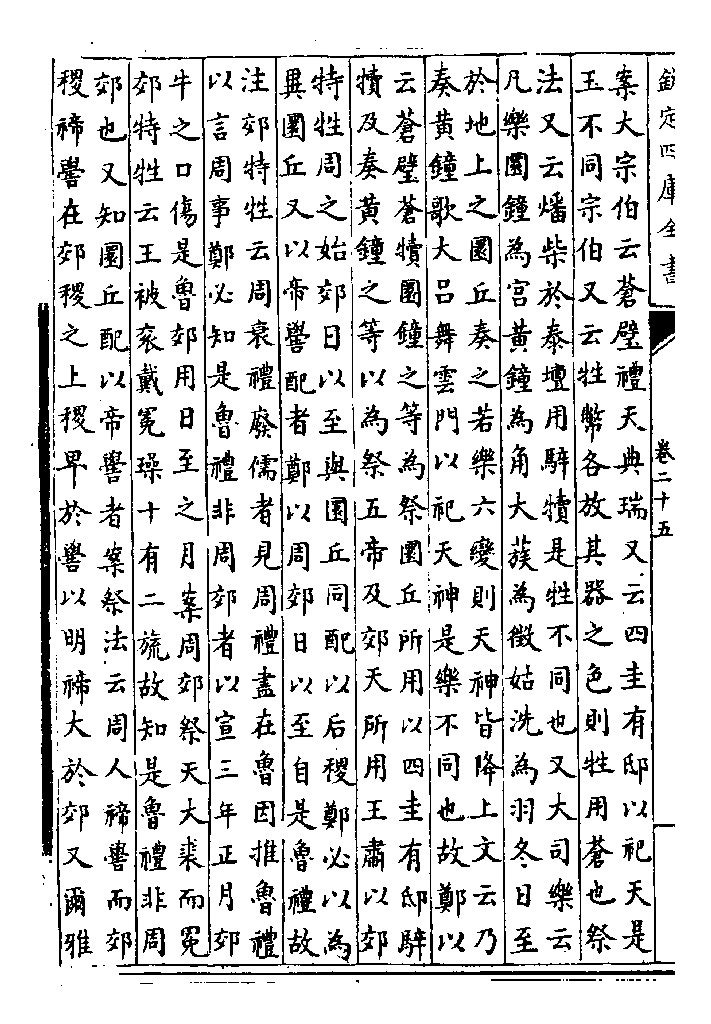 欽定四庫全書
卷二十五
案大宗伯云蒼璧禮天典瑞又云四圭有邸以祀天是
玉不同宗伯又云牲幣各放其器之色則牲用蒼也祭
法又云燔柴於泰壇用騂犢是牲不同也又大司樂云
凡樂圜鐘為宮黃鐘為角大蔟為徵姑洗為羽冬日至
於地上之圜丘奏之若樂六變則天神皆降上文云乃
奏黃鐘歌大呂舞雲門以祀天神是樂不同也故鄭以
云蒼璧蒼犢圜鐘之等為祭圜丘所用以四圭有邸騂
犢及奏黃鐘之等以為祭五帝及郊天所用王肅以郊
特牲周之始郊日以至與圜丘同配以后稷鄭必以為
異圜丘又以帝嚳配者鄭以周郊日以至自是魯禮故
注郊特牲云周衰禮廢儒者見周禮盡在魯因推魯禮
以言周事鄭必知是魯禮非周郊者以宣三年正月郊
牛之口傷是魯郊用日至之月案周郊祭天大裘而冕
郊特牲云王被衮戴冕璪十有二旒故知是魯禮非周
郊也又知圜丘配以帝嚳者案祭法云周人禘嚳而郊
稷禘嚳在郊稷之上稷卑於嚳以明禘大於郊又爾雅